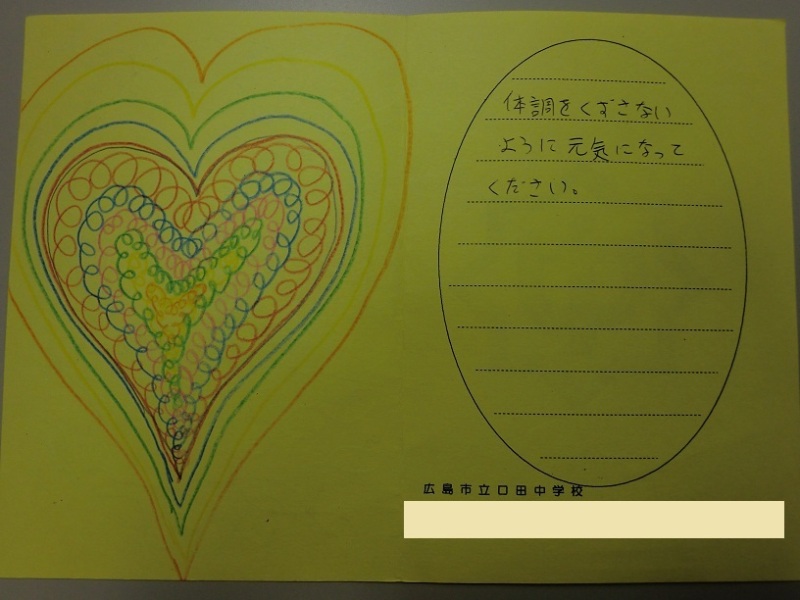 体調をくずさない
ように元気になって
ください。
広島市立口田中学校